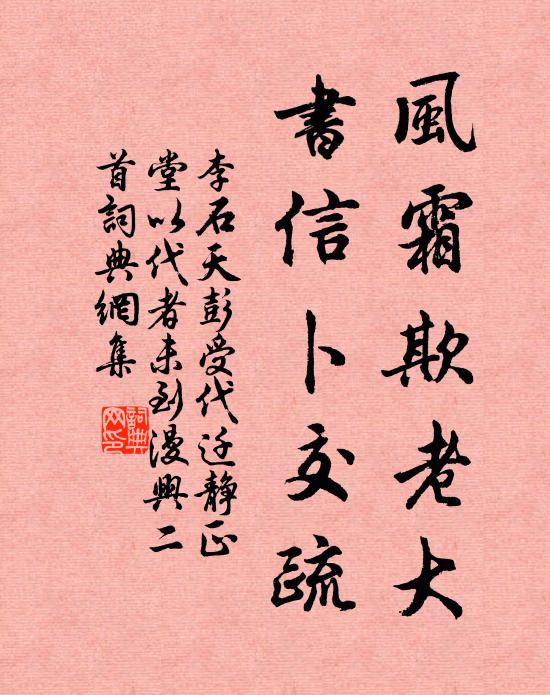 風霜欺老大
書信卜交疏
李石天彭受代迁静正
堂以代者未到漫興二
首詞典網集
詞典
网印